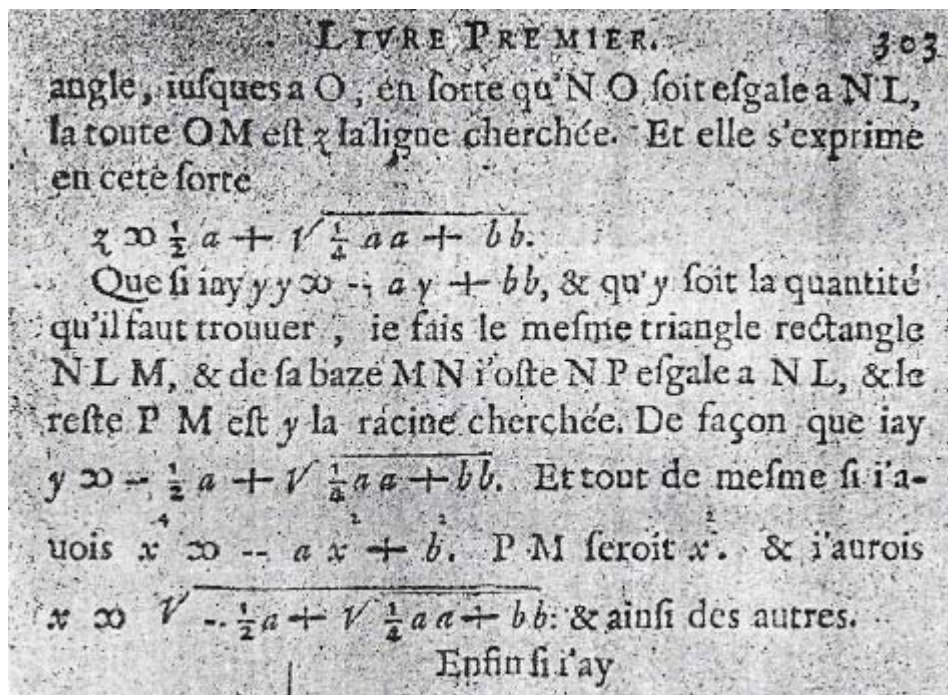 LIVRE PREMIER. 303
angle, iuſques a O, en ſorte qu'N O ſoit eſgale a N L,
la toute O M eſt z la ligne cherchée. Et elle s'exprime
en cete ſorte
z ∞ ½ a + √ ¼ aa + bb.
Que ſi iay yy ∞ -- a y + bb, & qu'y ſoit la quantité
qu'il faut trouuer, ie fais le meſme triangle rectangle
N L M, & de ſa baze M N i'oſte N P eſgale a N L, & le
reſte P M eſt y la racine cherchée. De façon que iay
y ∞ -- ½ a + √ ¼ aa + bb. Et tout de meſme ſi i'a-
uois x⁴ ∞ -- a x² + b². P M ſeroit x². & i'aurois
x ∞ √ -- ½ a + √ ¼ aa + bb: & ainſi des autres.
Enfin ſi i'ay